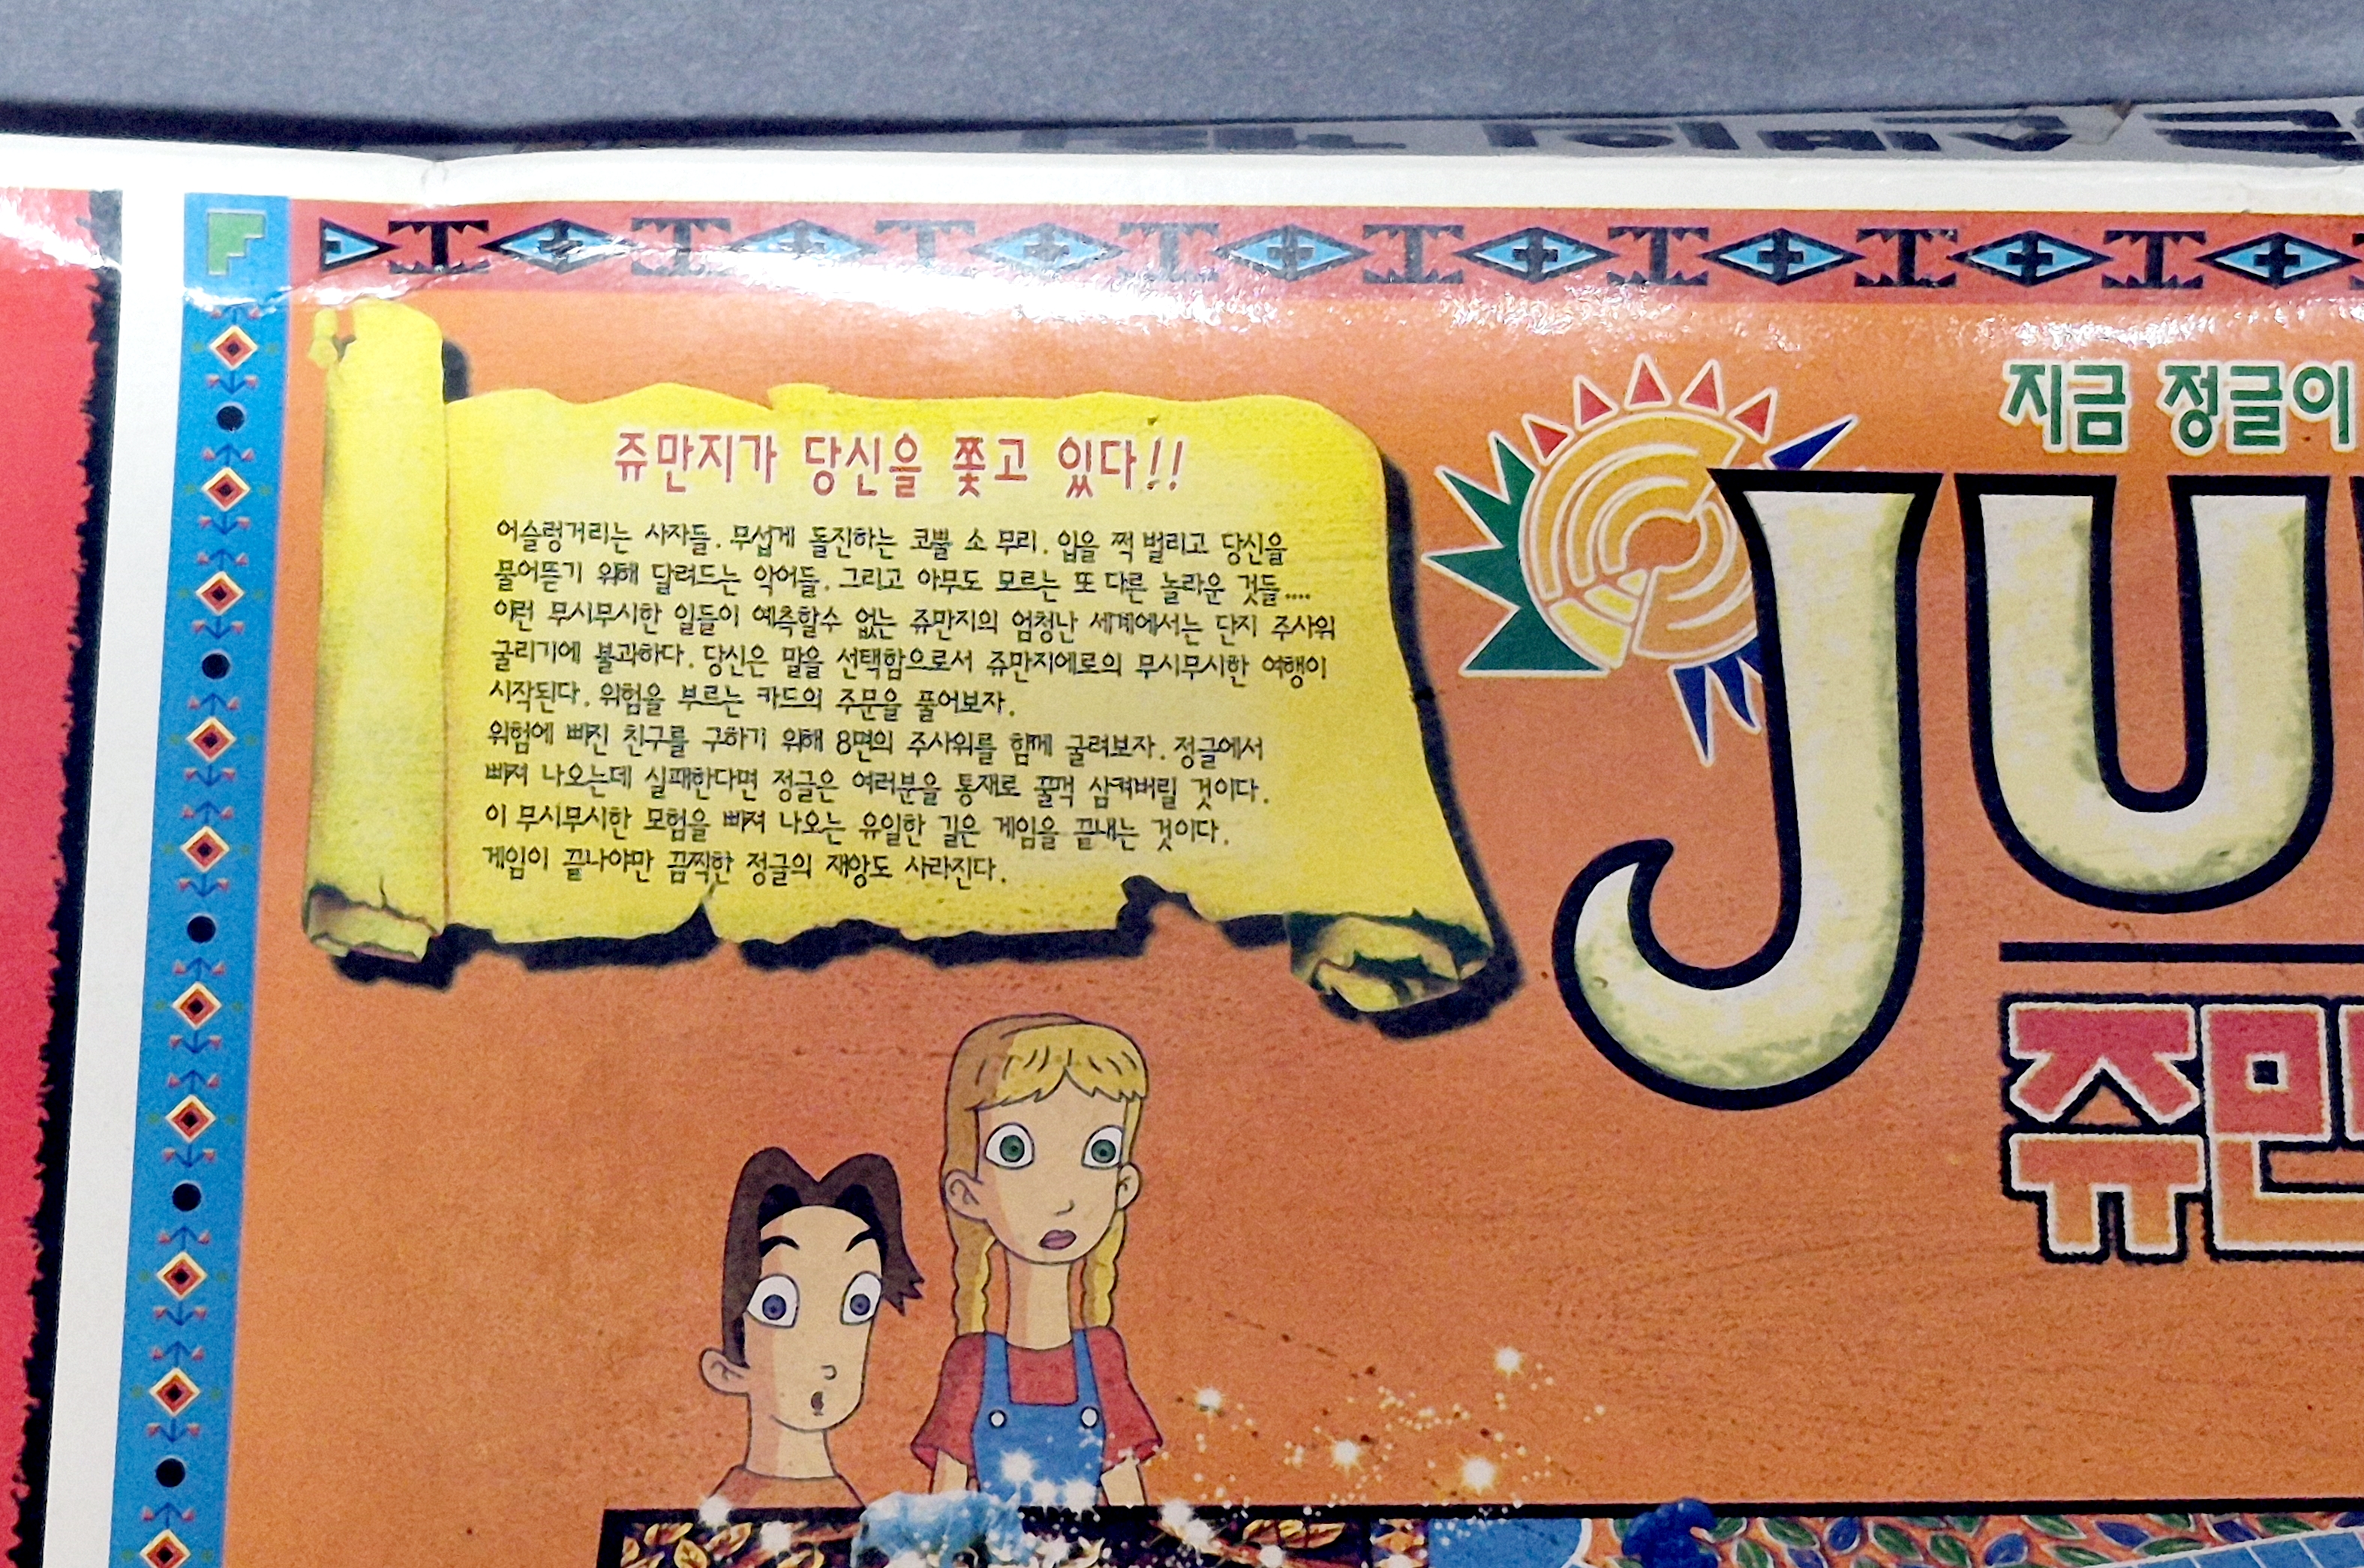 쥬만지가 당신을 쫓고 있다!!
어슬렁거리는 사자들. 무섭게 돌진하는 코뿔 소 무리. 입을 쩍 벌리고 당신을
물어뜯기 위해 달려드는 악어들. 그리고 아무도 모르는 또 다른 놀라운 것들....
이런 무시무시한 일들이 예측할수 없는 쥬만지의 엄청난 세계에서는 단지 주사위
굴리기에 불과하다. 당신은 말을 선택함으로서 쥬만지에로의 무시무시한 여행이
시작된다. 위험을 부르는 카드의 주문을 풀어보자.
위험에 빠진 친구를 구하기 위해 8면의 주사위를 함께 굴려보자. 정글에서
빠져 나오는데 실패한다면 정글은 여러분을 통재로 꿀꺽 삼켜버릴 것이다.
이 무시무시한 모험을 빠져 나오는 유일한 길은 게임을 끝내는 것이다.
게임이 끝나야만 끔찍한 정글의 재앙도 사라진다.
지금 정글이
JU
쥬만